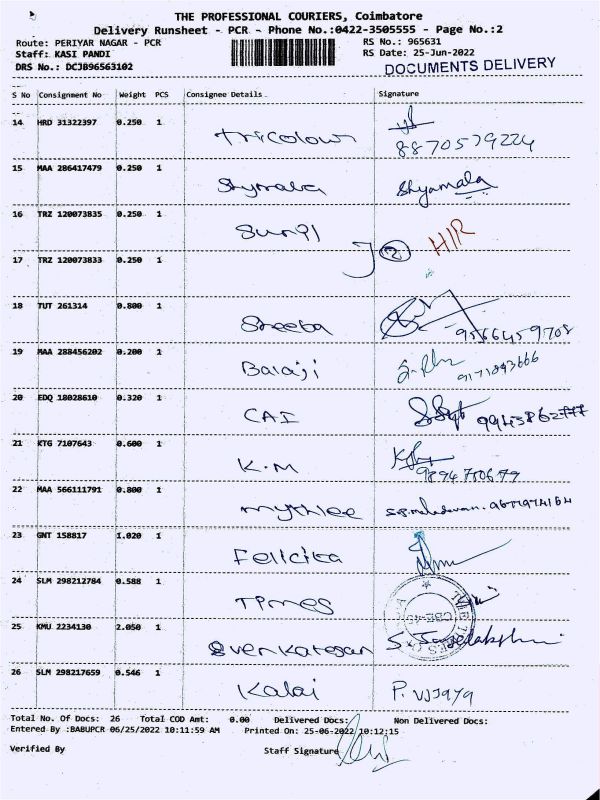 THE PROFESSIONAL COURIERS, Coimbatore
Delivery Runsheet - PCR - Phone No.:0422-3505555 - Page No.:2
Route: PERIYAR NAGAR - PCR RS No.: 965631
Staff: KASI PANDI RS Date: 25-Jun-2022
DRS No.: DCJB96563102 DOCUMENTS DELIVERY
S No Consignment No Weight PCS Consignee Details Signature
14 HRD 31322397 0.250 1 Tricolour 8870579224
15 MAA 286417479 0.250 1 Shymala Shyamala
16 TRZ 120073835 0.250 1 Sunil H/R
17 TRZ 120073833 0.250 1 2
18 TUT 261314 0.800 1 Sheeba 9566459708
19 MAA 288456202 0.200 1 Balaji 9171893666
20 EDQ 18028610 0.320 1 CAI
21 KTG 7107643 0.600 1 K.M
22 MAA 566111791 0.800 1 mythlee
23 GNT 158817 1.020 1 Felicita
24 SLM 298212784 0.588 1
25 KMU 2234130 2.050 1 Svenkatesan
26 SLM 298217659 0.546 1 Kalai P. Vijaya
Total No. Of Docs: 26 Total COD Amt: 0.00 Delivered Docs: Non Delivered Docs:
Entered By :BABUPCR 06/25/2022 10:11:59 AM Printed On: 25-06-2022 10:12:15
Verified By Staff Signature